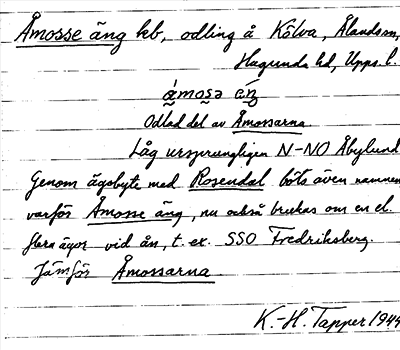 Åmosse äng kb, odling å Kölva, Ålandsm,
Hagunda hd, Upps. l.
Odlad del av Åmossarna
Låg ursprungligen N-NO Åbylund
Genom ägobyte med Rosendal böts även namnen
varför Åmosse äng, nu också brukas om en el.
flera ägor vid ån, t. ex. SSO Fredriksberg.
Jämför Åmossarna
K.-H. Tapper 1944